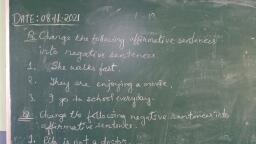 DATE: 08.11.2021
Q. Change the following affirmative sentences
into negative sentences
1. She walks fast.
2. They are enjoying a movie.
3. I go to school everyday.
Q. Change the following negative sentences into
affirmative sentences.
1. is not a doctor